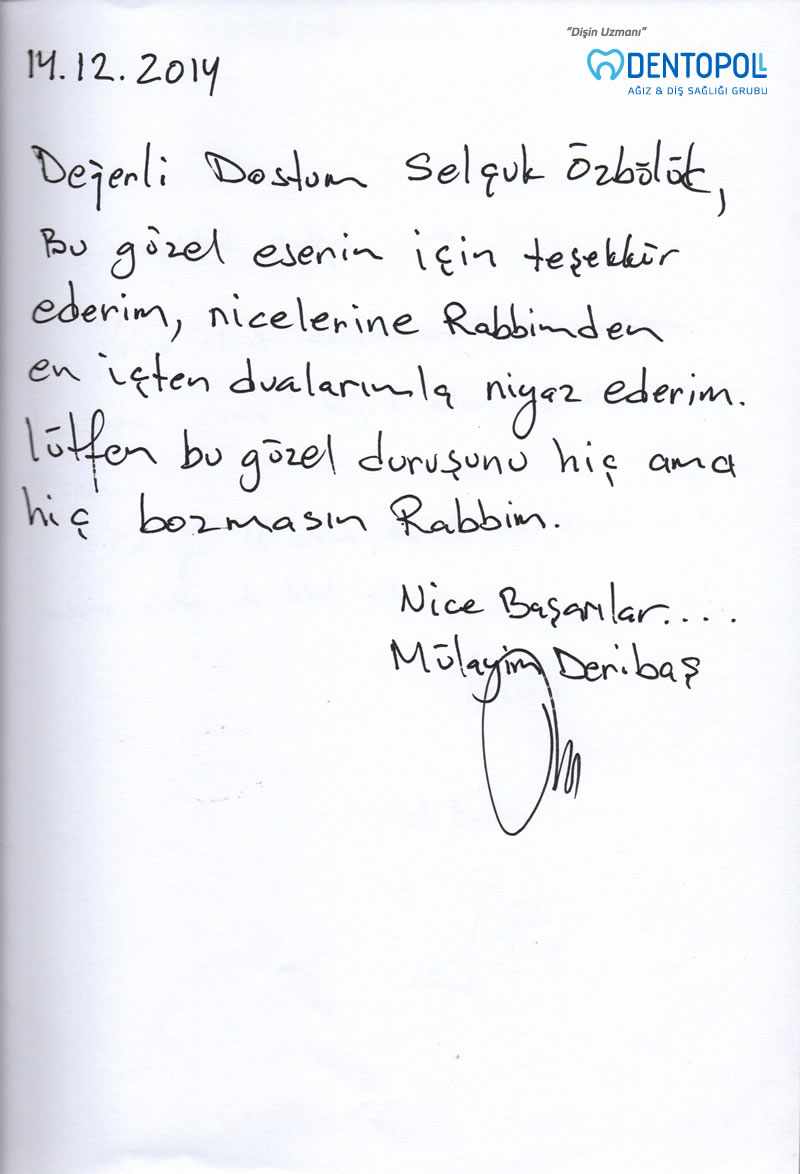 "Dişin Uzmanı"
DENTOPOLL
AĞIZ & DİŞ SAĞLIĞI GRUBU
14.12.2014
Değerli Dostum Selçuk Özbölük,
Bu güzel eserin için teşekkür
ederim, nicelerine Rabbimden
en içten dualarımla niyaz ederim.
lütfen bu güzel duruşunu hiç ama
hiç bozmasın Rabbim.
Nice Başarılar....
Mülayim Deribaş